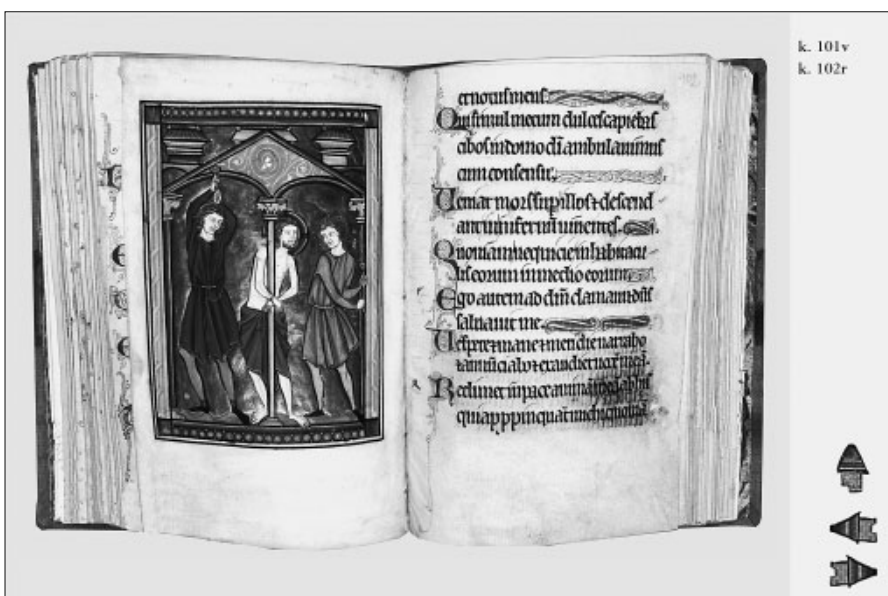 k. 101v
k. 102r
et notus meus.
Qui simul mecum dulces capiebas
cibos in domo di ambulauimus
cum consensu.
Ueniat mors sup illos & descend
ant in infernum uiuentes.
Quoniam nequicie in habitacu
lis eorum in medio eorum
Ego autem ad dm clamaui & dns
saluauit me.
Uespere & mane & meridie narrabo
& annunciabo & exaudiet uocem mea.
Redimet in pace animam mea ab his